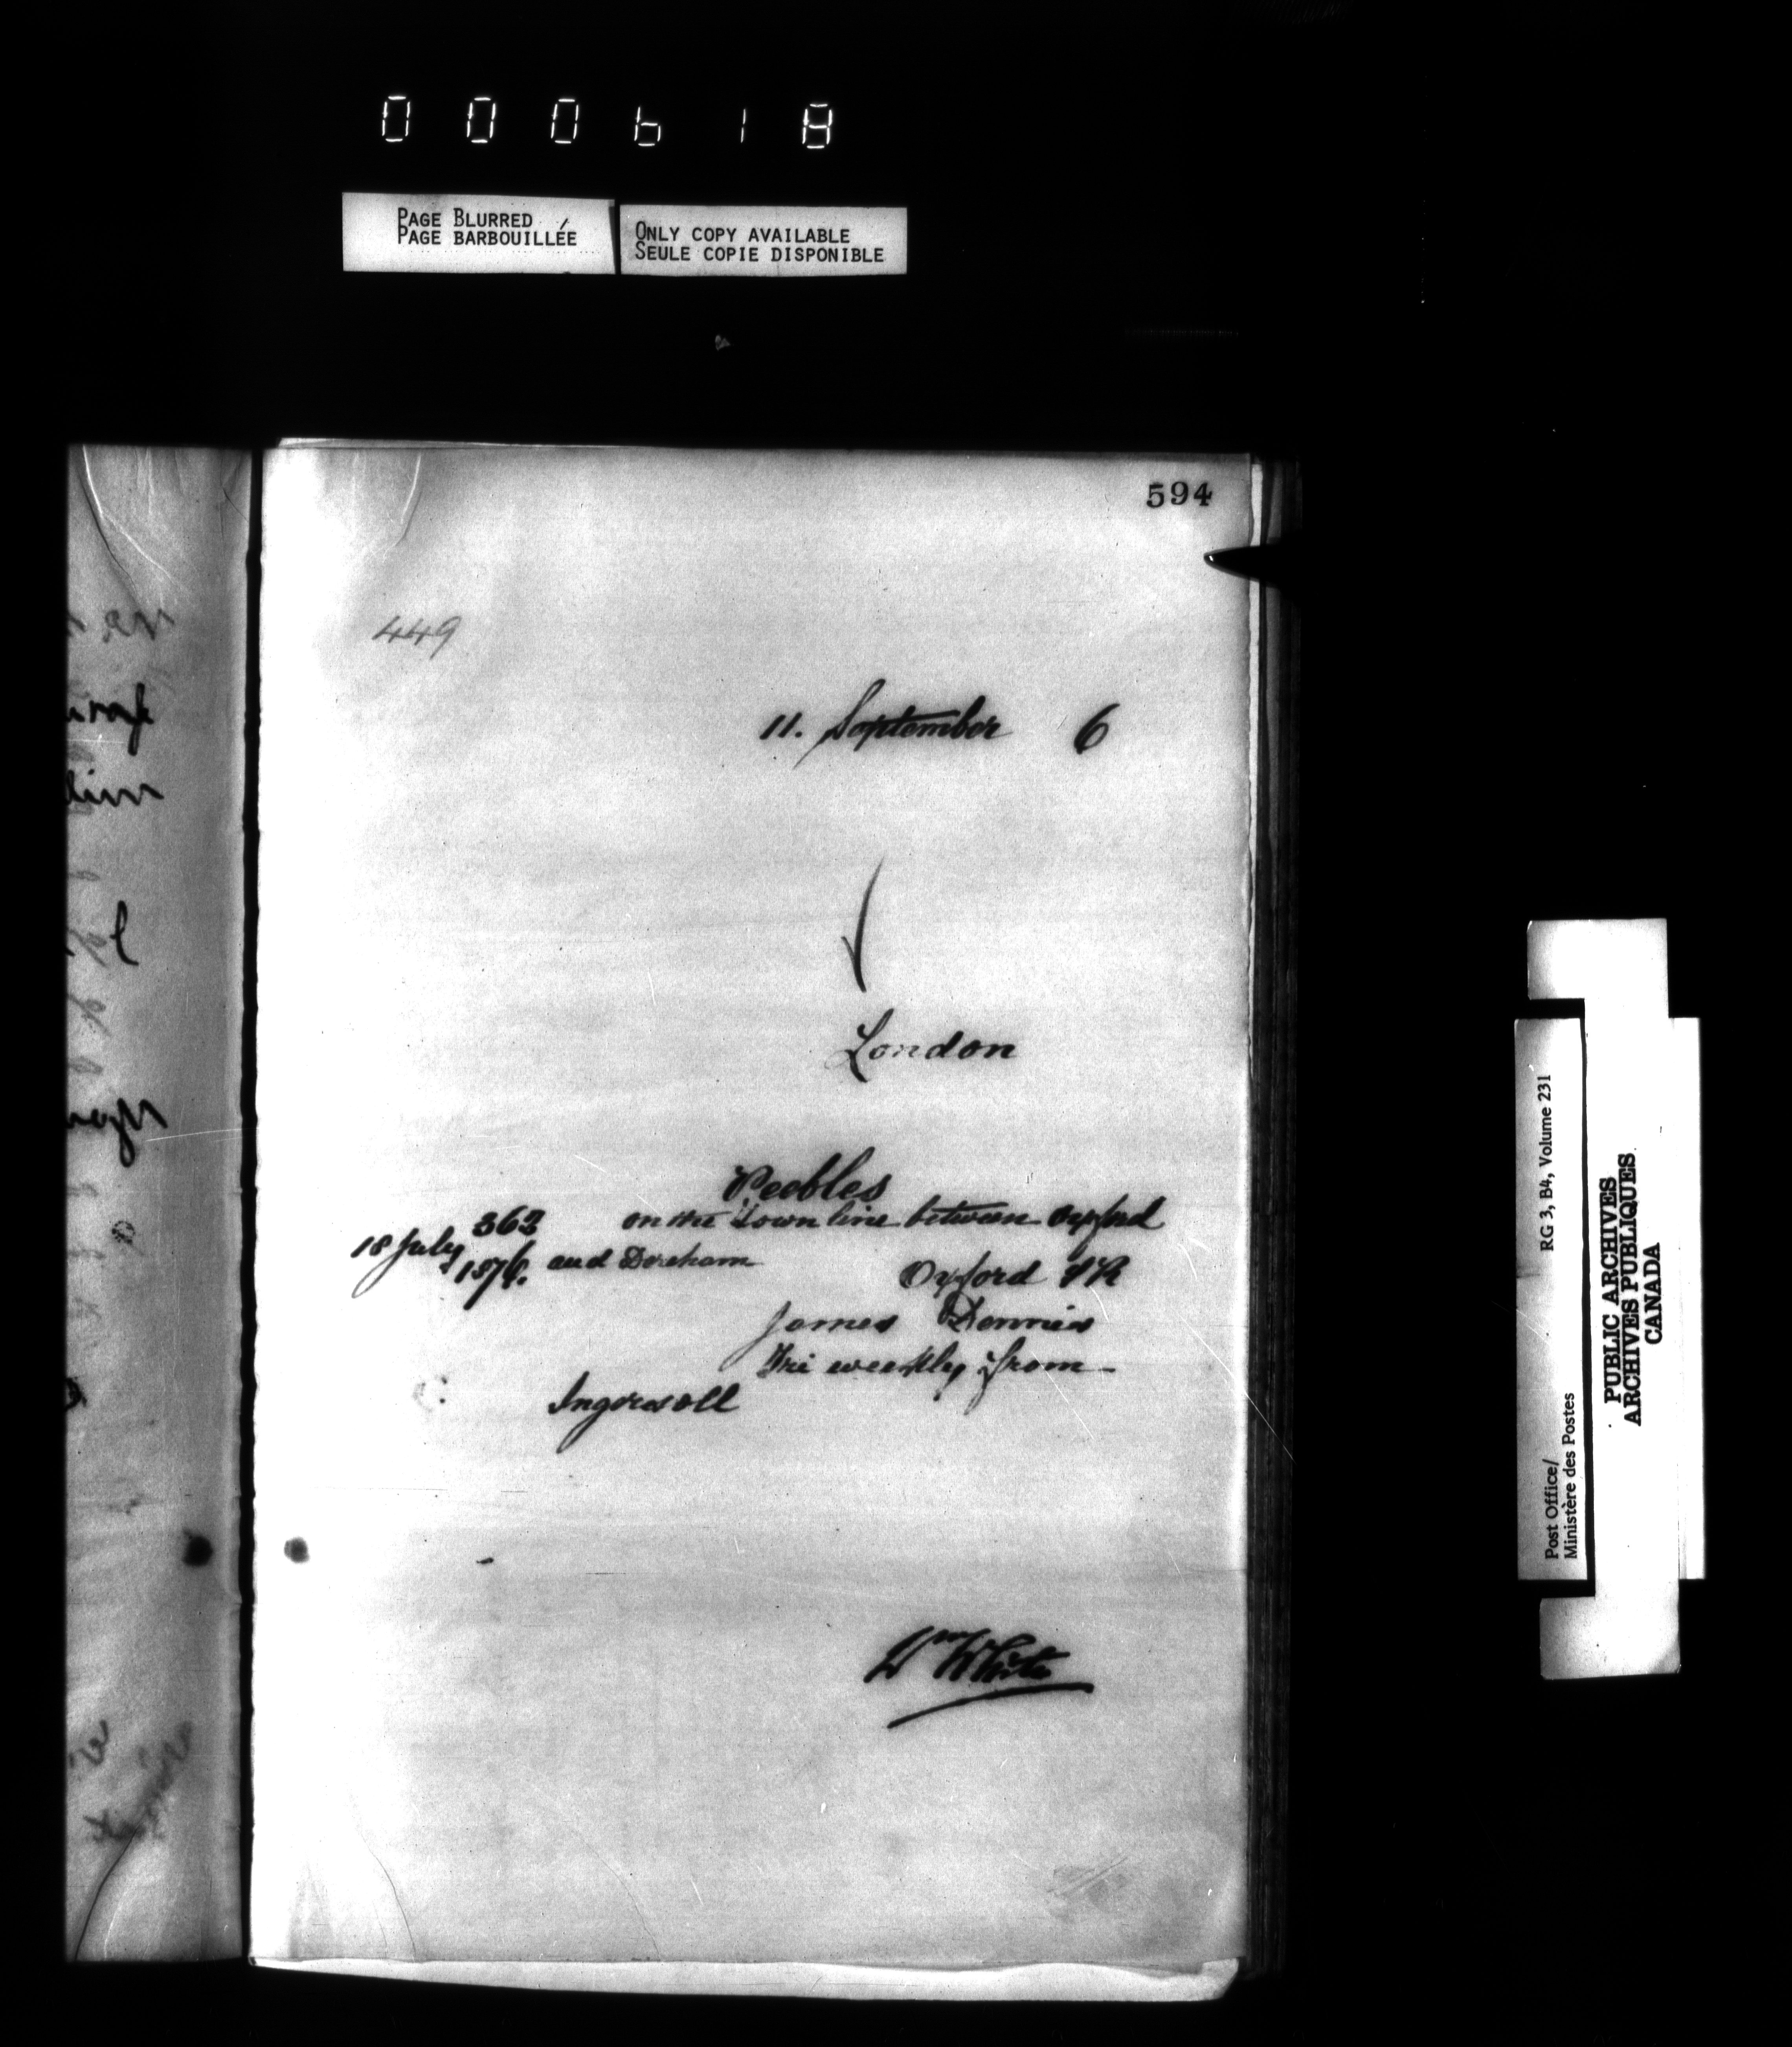 000618
PAGE BLURRED
PAGE BARBOUILLÉE
ONLY COPY AVAILABLE
SEULE COPIE DISPONIBLE
594
449
11. September 6
London
Peebles
362 on the Town line between Oxford
18 July 1876. and Dereham
Oxford SR
James Dennis
Tri weekly from
Ingersoll
Wm White
Post Office/
Ministère des Postes
RG 3, B4, Volume 231
PUBLIC ARCHIVES
ARCHIVES PUBLIQUES
CANADA